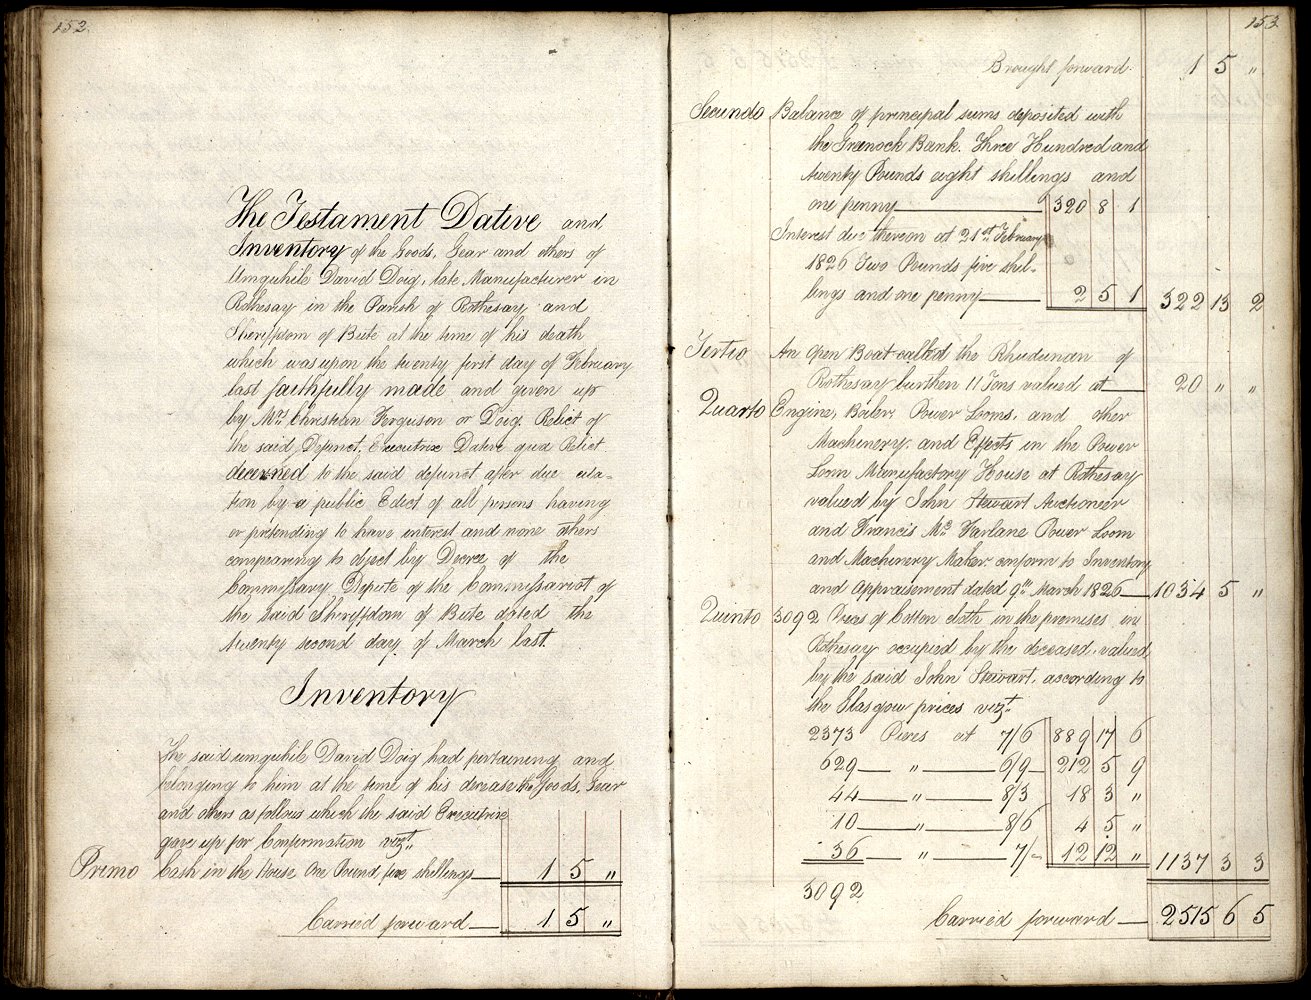 152.
The Testament Dative and
Inventory of the Goods, Gear and others of
Umquhile David Doig, late Manufacturer in
Rothesay in the Parish of Rothesay and
Sheriffdom of Bute at the time of his death
which was upon the twenty first day of February
last faithfully made and given up
by Mrs Christian Ferguson or Doig. Relict of
the said Defunct, Executrix Dative qua Relict
decerned to the said defunct after due cita-
tion by a public Edict of all persons having
or pretending to have interest and none others
compearing to object by Decree of the
Commissary Depute of the Commissariot of
the said Sheriffdom of Bute dated the
twenty second day of March last.
Inventory
The said umquhile David Doig had pertaining and
belonging to him at the time of his decease the Goods, Gear
and others as follows which the said Executrix
gave up for Confirmation vizt.
Primo Cash in the House One Pound five shillings 1 5 "
Carried forward 1 5 "
153
Brought forward. 1 5 "
Secundo Balance of principal sums deposited with
the Greenock Bank. Three Hundred and
twenty Pounds eight shillings and
one penny 320 8 1
Interest due thereon at 21st February
1826 Two Pounds five shil-
lings and one penny 2 5 1 322 13 2
Tertio An Open Boat called the Rhudunan of
Rothesay burthen 11 Tons valued at 20 " "
Quarto Engine, Boiler, Power Looms, and other
Machinery, and Effects in the Power
Loom Manufactory House at Rothesay
valued by John Stewart Auctioneer
and Francis Mc Farlane Power Loom
and Machinery Maker conform to Inventory
and Appraisement dated 9th March 1826 1034 5 "
Quinto 3092 Pieces of Cotton cloth in the premises in
Rothesay occupied by the deceased, valued
by the said John Stewart, according to
the Glasgow prices vizt.
2373 Pieces at 7/6 889 17 6
629 " 6/9 212 5 9
44 " 8/3 18 3 "
10 " 8/6 4 5 "
36 " 7/- 12 12 " 1137 3 3
3092
Carried forward 2515 6 5